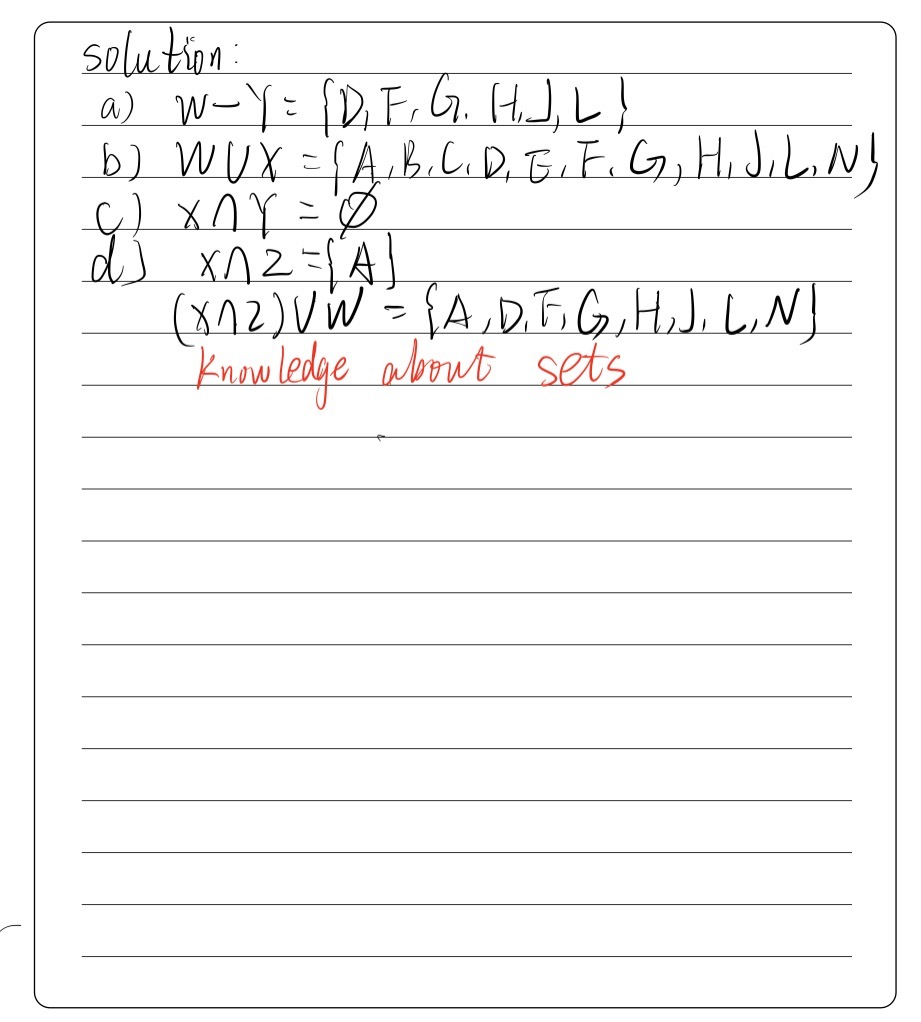 solution:
a) W-Y={D,F,G.H,J,L}
b) W∪X={A,B,C,D,E,F,G,H,J,L,N}
c) X∩Y=∅
d) X∩Z={A}
(X∩Z)∪W={A,D,F,G,H,J,L,N}
Knowledge about sets